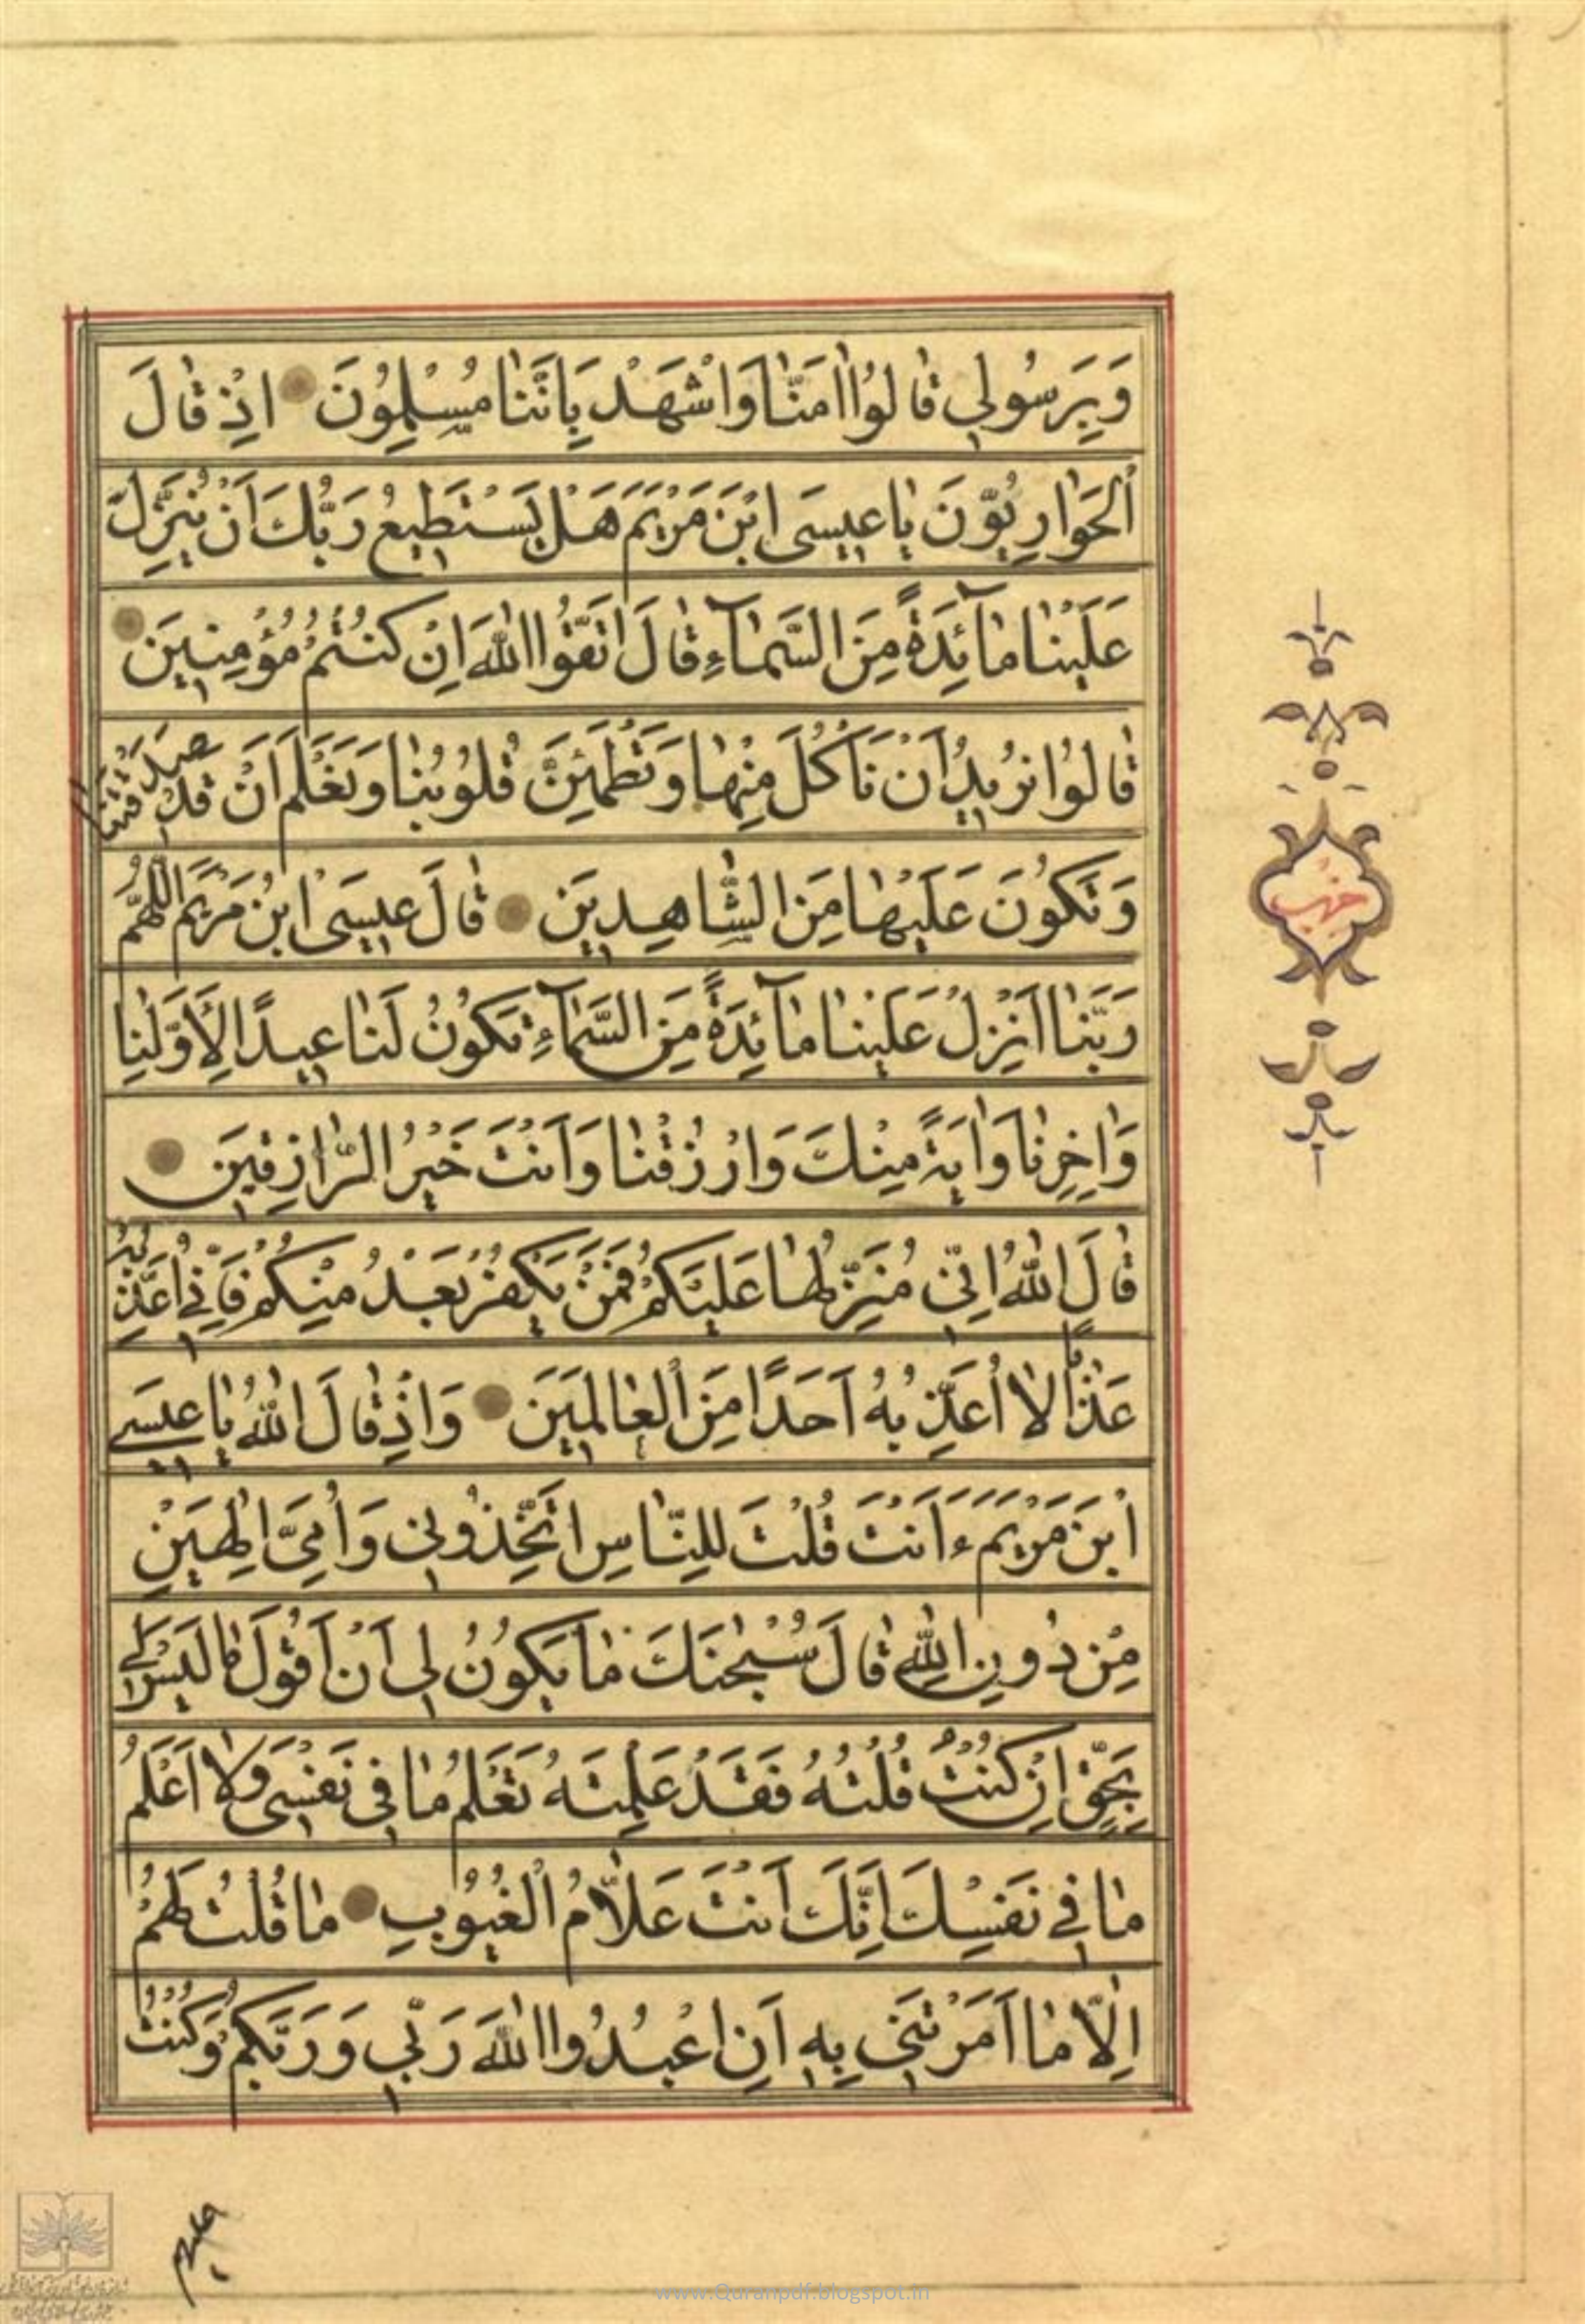 وَبِرَسُولِي قَالُوا اٰمَنَّا وَاشْهَدْ بِاَنَّنَا مُسْلِمُونَ اِذْ قَالَ
الْحَوَارِيُّونَ يَا عِيسَى ابْنَ مَرْيَمَ هَلْ يَسْتَطِيعُ رَبُّكَ اَنْ يُنَزِّلَ
عَلَيْنَا مَآئِدَةً مِنَ السَّمَآءِ قَالَ اتَّقُوا اللّٰهَ اِنْ كُنْتُمْ مُؤْمِنِينَ
قَالُوا نُرِيدُ اَنْ نَأْكُلَ مِنْهَا وَتَطْمَئِنَّ قُلُوبُنَا وَنَعْلَمَ اَنْ قَدْ صَدَقْتَنَا
وَنَكُونَ عَلَيْهَا مِنَ الشَّاهِدِينَ قَالَ عِيسَى ابْنُ مَرْيَمَ اللّٰهُمَّ
رَبَّنَا اَنْزِلْ عَلَيْنَا مَآئِدَةً مِنَ السَّمَآءِ تَكُونُ لَنَا عِيدًا لِاَوَّلِنَا
وَاٰخِرِنَا وَاٰيَةً مِنْكَ وَارْزُقْنَا وَاَنْتَ خَيْرُ الرَّازِقِينَ
قَالَ اللّٰهُ اِنِّي مُنَزِّلُهَا عَلَيْكُمْ فَمَنْ يَكْفُرْ بَعْدُ مِنْكُمْ فَاِنِّي اُعَذِّبُهُ
عَذَابًا لَا اُعَذِّبُهُ اَحَدًا مِنَ الْعَالَمِينَ وَاِذْ قَالَ اللّٰهُ يَا عِيسَى
ابْنَ مَرْيَمَ ءَاَنْتَ قُلْتَ لِلنَّاسِ اتَّخِذُونِي وَاُمِّيَ اِلٰهَيْنِ
مِنْ دُونِ اللّٰهِ قَالَ سُبْحٰنَكَ مَا يَكُونُ لِي اَنْ اَقُولَ مَا لَيْسَ لِي
بِحَقٍّ اِنْ كُنْتُ قُلْتُهُ فَقَدْ عَلِمْتَهُ تَعْلَمُ مَا فِي نَفْسِي وَلَا اَعْلَمُ
مَا فِي نَفْسِكَ اِنَّكَ اَنْتَ عَلَّامُ الْغُيُوبِ مَا قُلْتُ لَهُمْ
اِلَّا مَا اَمَرْتَنِي بِهِ اَنِ اعْبُدُوا اللّٰهَ رَبِّي وَرَبَّكُمْ وَكُنْتُ
حزب
عليهم
www.Quranpdf.blogspot.in